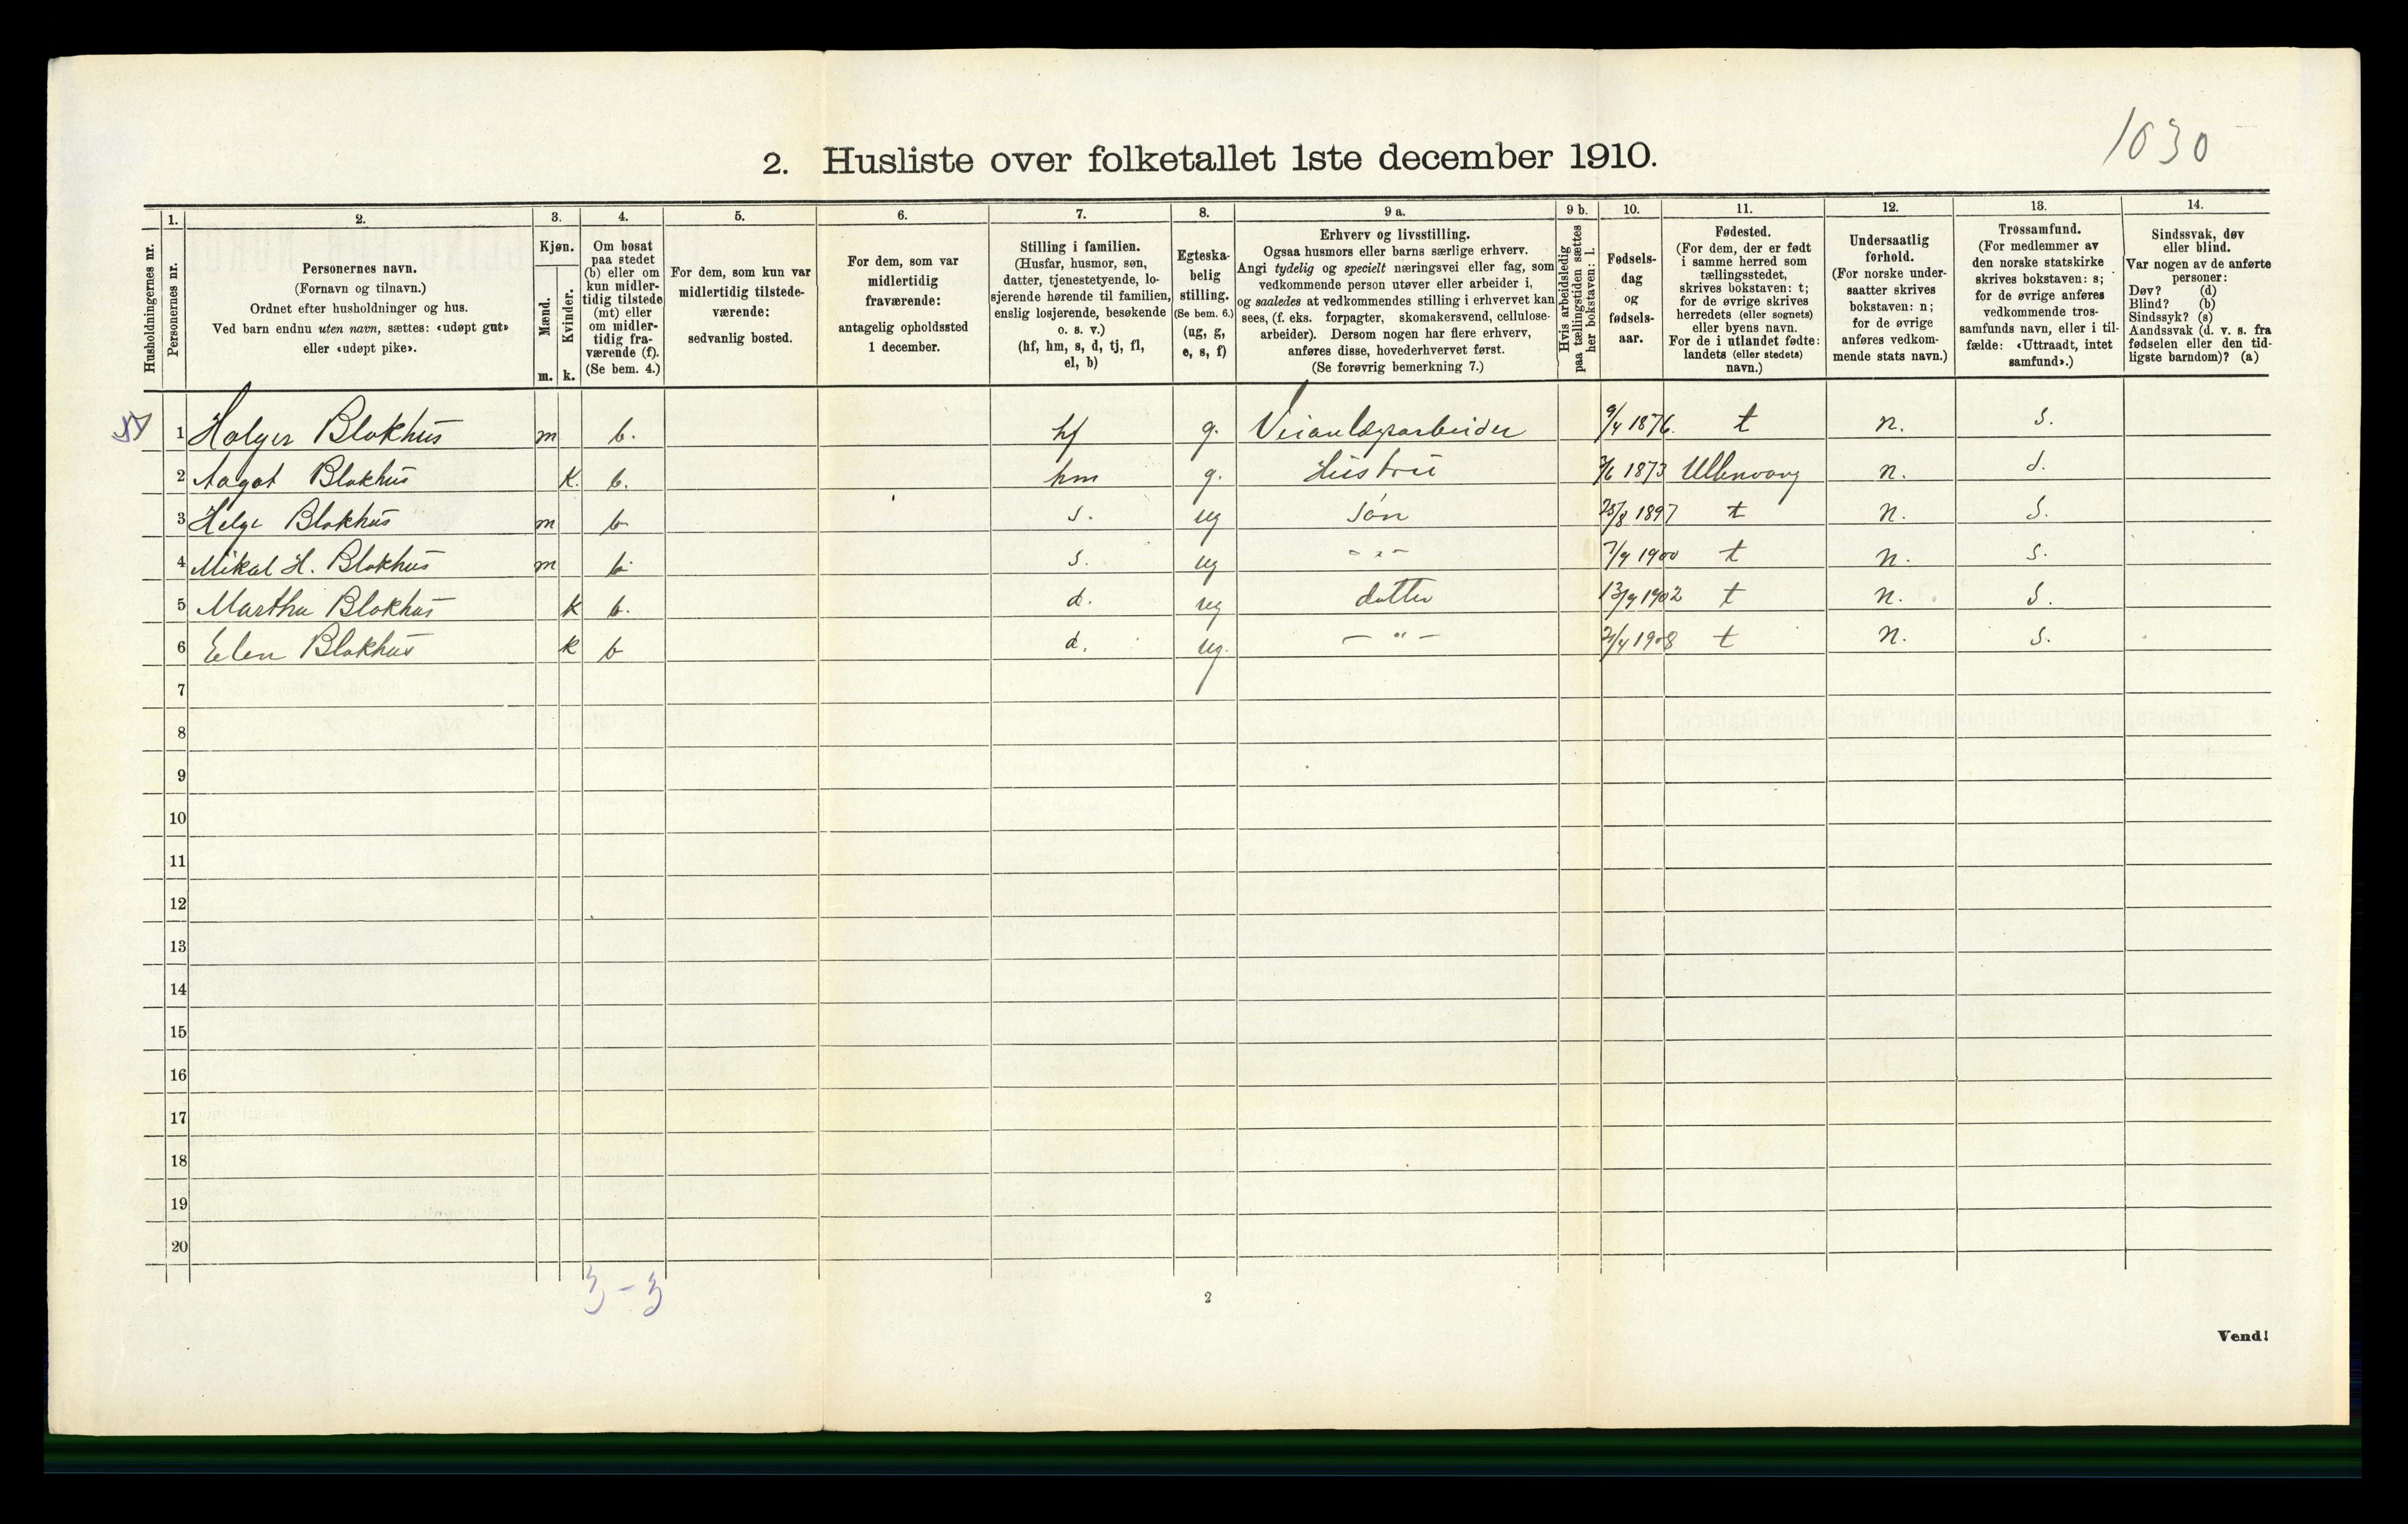 1030
2. Husliste over folketallet 1ste december 1910.
1. 2. 3. 4. 5. 6. 7. 8. 9 a. 9 b. 10. 11. 12. 13. 14.
Husholdningernes nr.
Personernes nr.
Personernes navn.
(Fornavn og tilnavn.)
Ordnet efter husholdninger og hus.
Ved barn endnu uten navn, sættes: «udøpt gut»
eller «udøpt pike».
Kjøn.
Mænd.
Kvinder.
m. k.
Om bosat
paa stedet
(b) eller om
kun midler-
tidig tilstede
(mt) eller
om midler-
tidig fra-
værende (f).
(Se bem. 4.)
For dem, som kun var
midlertidig tilstede-
værende:
sedvanlig bosted.
For dem, som var
midlertidig
fraværende:
antagelig opholdssted
1 december.
Stilling i familien.
(Husfar, husmor, søn,
datter, tjenestetyende, lo-
sjerende hørende til familien,
enslig losjerende, besøkende
o. s. v.)
(hf, hm, s, d, tj, fl,
el, b)
Egteska-
belig
stilling.
(Se bem. 6.)
(ug, g,
e, s, f)
Erhverv og livsstilling.
Ogsaa husmors eller barns særlige erhverv.
Angi tydelig og specielt næringsvei eller fag, som
vedkommende person utøver eller arbeider i,
og saaledes at vedkommendes stilling i erhvervet kan
sees, (f. eks. forpagter, skomakersvend, cellulose-
arbeider). Dersom nogen har flere erhverv,
anføres disse, hovederhvervet først.
(Se forøvrig bemerkning 7.)
Hvis arbeidsledig
paa tællingstiden sættes
her bokstaven: l.
Fødsels-
dag
og
fødsels-
aar.
Fødested.
(For dem, der er født
i samme herred som
tællingsstedet,
skrives bokstaven: t;
for de øvrige skrives
herredets (eller sognets)
eller byens navn.
For de i utlandet fødte:
landets (eller stedets)
navn.)
Undersaatlig
forhold.
(For norske under-
saatter skrives
bokstaven: n;
for de øvrige
anføres vedkom-
mende stats navn.)
Trossamfund.
(For medlemmer av
den norske statskirke
skrives bokstaven: s;
for de øvrige anføres
vedkommende tros-
samfunds navn, eller i til-
fælde: «Uttraadt, intet
samfund».)
Sindssvak, døv
eller blind.
Var nogen av de anførte
personer:
Døv? (d)
Blind? (b)
Sindssyk? (s)
Aandssvak (d. v. s. fra
fødselen eller den tid-
ligste barndom)? (a)
1 Holger Blokhus m b. hf g. Veianlægsarbeider 9/4 1876. t n. s.
2 Aagot Blokhus k. b. hm g. Hustru 1873 Ullensvang n. s.
3 Helge Blokhus m b s. ug søn 25/8 1897 t n. s.
4 Mikal H. Blokhus m b s. ug - " - 7/9 1900 t n. s.
5 Martha Blokhus k b. d. ug datter 13/9 1902 t n. s.
6 Elen Blokhus k b d. ug. - " - 2/4 1908 t n. s.
7
8
9
10
11
12
13
14
15
16
17
18
19
20
3 - 3
2
Vend!